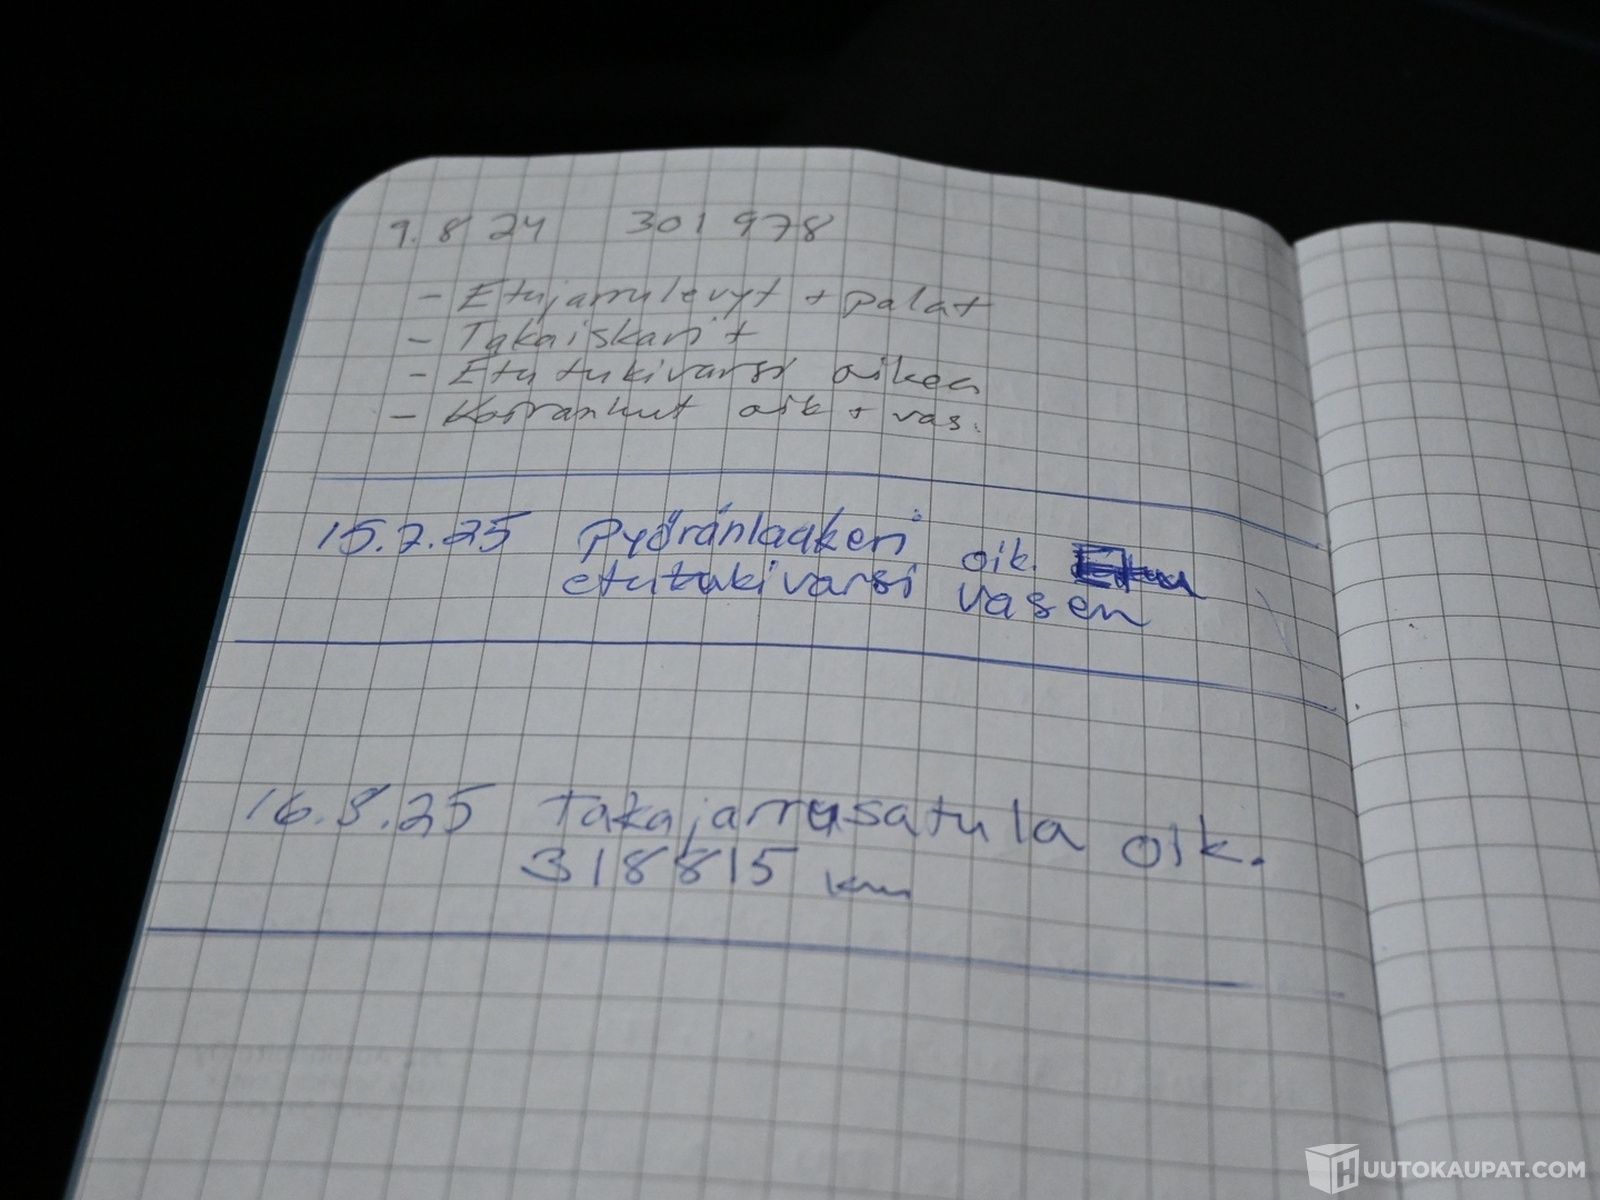 9.8 24 301 978
- Etujarrulevyt + palat
- Takaiskarit
- Etutukivarsi oikea
- Koiranluut oik + vas.
15.2.25 Pyöränlaakeri oik.
etutukivarsi vasen
16.8.25 Takajarrusatula oik.
318815 km
HUUTOKAUPAT.COM